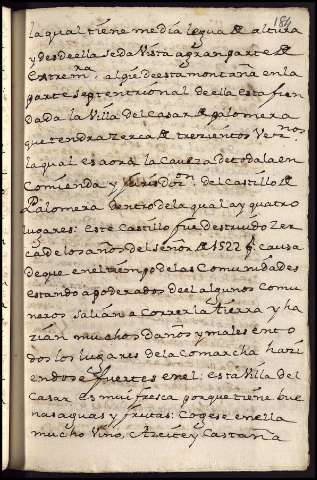 184
la qual tiene media legua de altura
y desde ella se da Vista a gran parte de
Extrem.ra al pie de esta montaña en la
parte septentrional de ella esta fun
dada la Villa del Casar de palomera
que tendra zerca de trezientos Vezi.nos
la qual es aora la Caveza de toda la en
Comienda y del Castillo de
Palomera dentro de la qual ay quatro
lugares: este Castillo fue destruido zer
ca de los años del señor de 1522 causa
de que en el tiempo de las Comunidades
estando apoderados de el algunos Comu
neros salian a Correr la tierra y ha
zian muchos daños y males en to
dos los lugares de la Comarcha hazi
endose ffuertes en el: esta Villa del
Casar es mui fresca porque tiene bue
nas aguas y frutas: Cogese en ella
mucho Vino, Azeite y Castaña